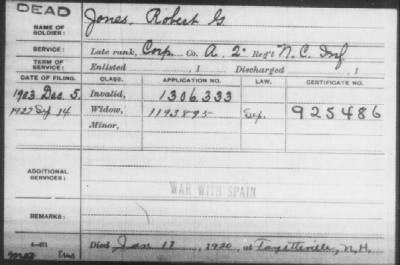 DEAD
NAME OF SOLDIER: Jones, Robert G
SERVICE: Late rank, Corp Co. A, 2" Reg't N.C. Inf.
TERM OF SERVICE: Enlisted , 1 Discharged , 1
DATE OF FILING. CLASS. APPLICATION NO. LAW. CERTIFICATE NO.
1903 Dec. 5. Invalid, 1306333
1927 Sep 14 Widow, 1193895 Sep. 925486
Minor,
ADDITIONAL SERVICES:
WAR WITH SPAIN
REMARKS:
Died Jan 11, 1920, at Fayetteville, N.H.